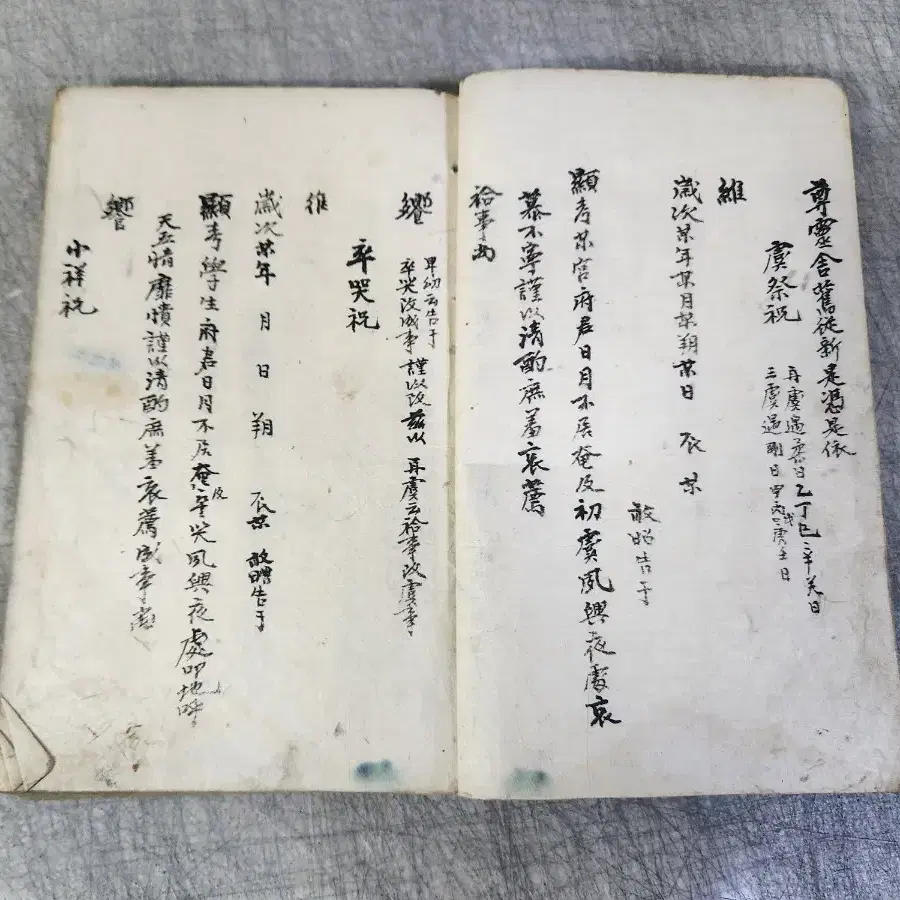 尊靈舍舊從新是憑是依
虞祭祝
再虞遇柔日乙丁己辛癸日
三虞遇剛日甲丙戊庚壬日
維
歲次某年某月某朔某日 辰某
敢昭告于
顯考某官府君日月不居奄及初虞夙興夜處哀
慕不寧謹以淸酌庶羞哀薦
祫事尙
饗
卑幼云告于
卒哭改成事謹以改玆以 再虞云祫事改虞事
卒哭祝
維
歲次某年 月 日 朔 辰某 敢昭告于
顯考學生府君日月不居奄及卒哭夙興夜處叩地呼
天五情靡憒謹以淸酌庶羞哀薦成事尙
饗
小祥祝